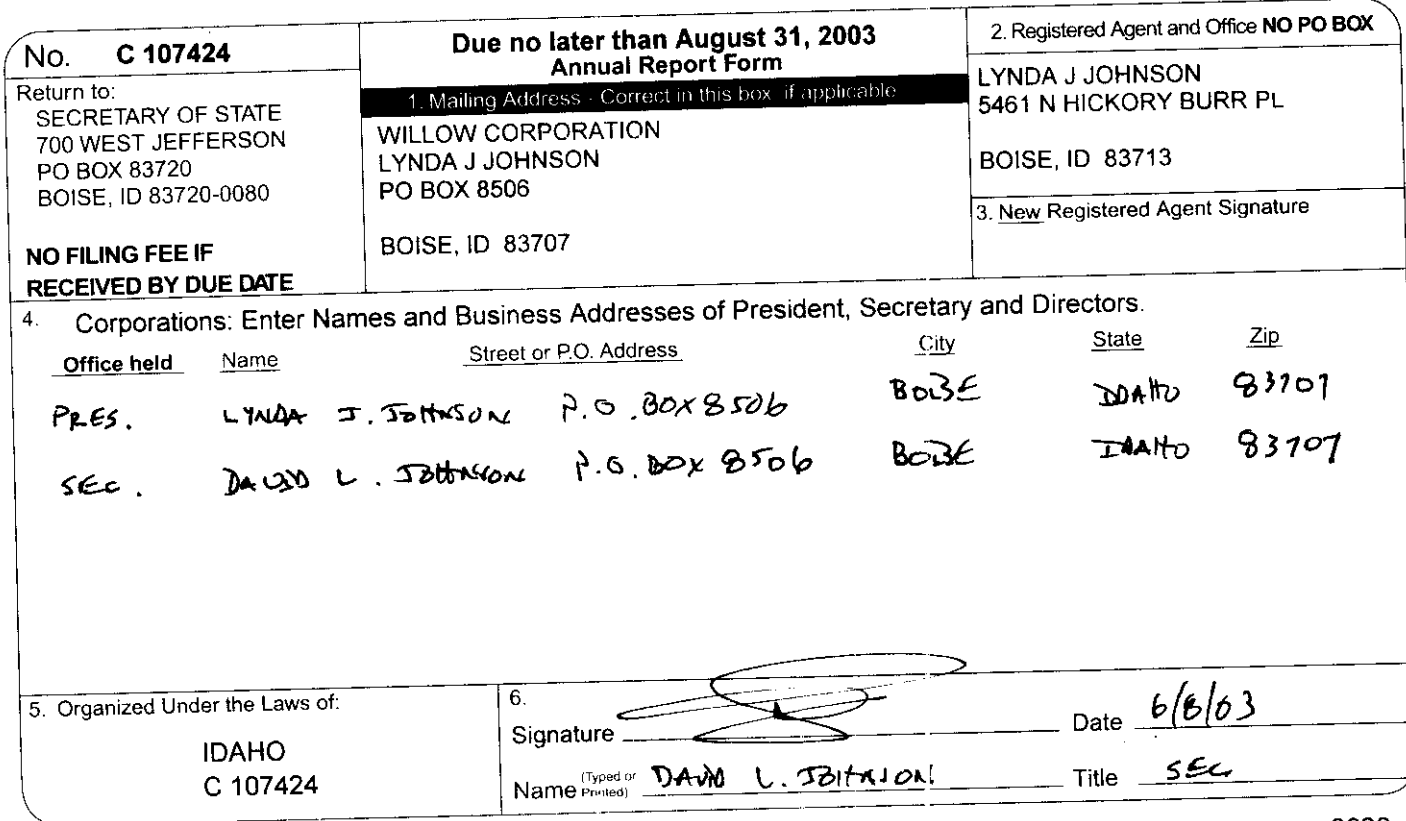 No. C 107424
Return to:
SECRETARY OF STATE
700 WEST JEFFERSON
PO BOX 83720
BOISE, ID 83720-0080
NO FILING FEE IF
RECEIVED BY DUE DATE
Due no later than August 31, 2003
Annual Report Form
1. Mailing Address - Correct in this box if applicable
WILLOW CORPORATION
LYNDA J JOHNSON
PO BOX 8506
BOISE, ID 83707
2. Registered Agent and Office NO PO BOX
LYNDA J JOHNSON
5461 N HICKORY BURR PL
BOISE, ID 83713
3. New Registered Agent Signature
4. Corporations: Enter Names and Business Addresses of President, Secretary and Directors.
Office held Name Street or P.O. Address City State Zip
PRES. LYNDA J. JOHNSON P.O. BOX 8506 BOISE IDAHO 83707
SEC. DAVID L. JOHNSON P.O. BOX 8506 BOISE IDAHO 83707
5. Organized Under the Laws of:
IDAHO
C 107424
6.
Signature Date 6/8/03
Name (Typed or Printed) DAVID L. JOHNSON Title SEC